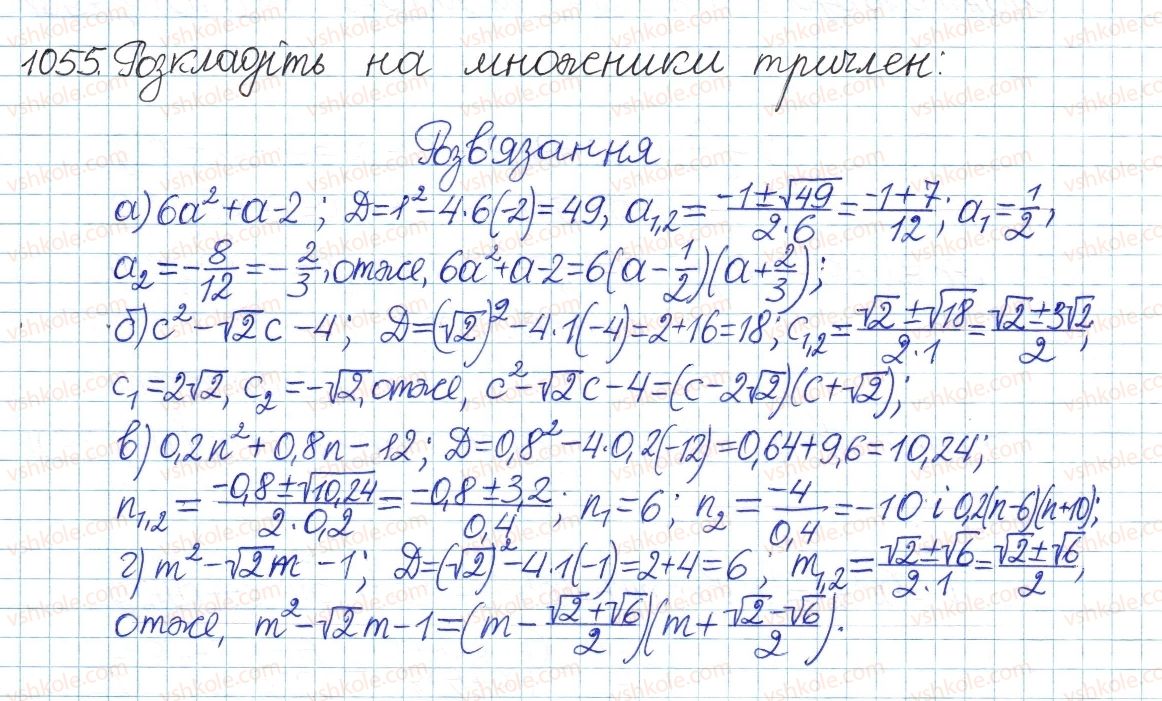 1055. Розкладіть на множники тричлен:
Розв'язання
а) 6a² + a - 2 ; D = 1² - 4·6(-2) = 49, a₁,₂ = (-1 ± √49)/(2·6) = (-1 + 7)/12 ; a₁ = 1/2 ,
a₂ = -8/12 = -2/3 , отже, 6a² + a - 2 = 6(a - 1/2)(a + 2/3) ;
б) c² - √2c - 4 ; D = (√2)² - 4·1(-4) = 2 + 16 = 18 ; c₁,₂ = (√2 ± √18)/(2·1) = (√2 ± 3√2)/2 ,
c₁ = 2√2 , c₂ = -√2 , отже, c² - √2c - 4 = (c - 2√2)(c + √2) ;
в) 0,2n² + 0,8n - 12 ; D = 0,8² - 4·0,2(-12) = 0,64 + 9,6 = 10,24 ;
n₁,₂ = (-0,8 ± √10,24)/(2·0,2) = (-0,8 ± 3,2)/0,4 ; n₁ = 6 ; n₂ = -4/0,4 = -10 і 0,2(n-6)(n+10) ;
г) m² - √2m - 1 ; D = (√2)² - 4·1(-1) = 2 + 4 = 6 ; m₁,₂ = (√2 ± √6)/(2·1) = (√2 ± √6)/2 ,
отже, m² - √2m - 1 = (m - (√2 + √6)/2)(m + (√2 - √6)/2).
vshkole.com